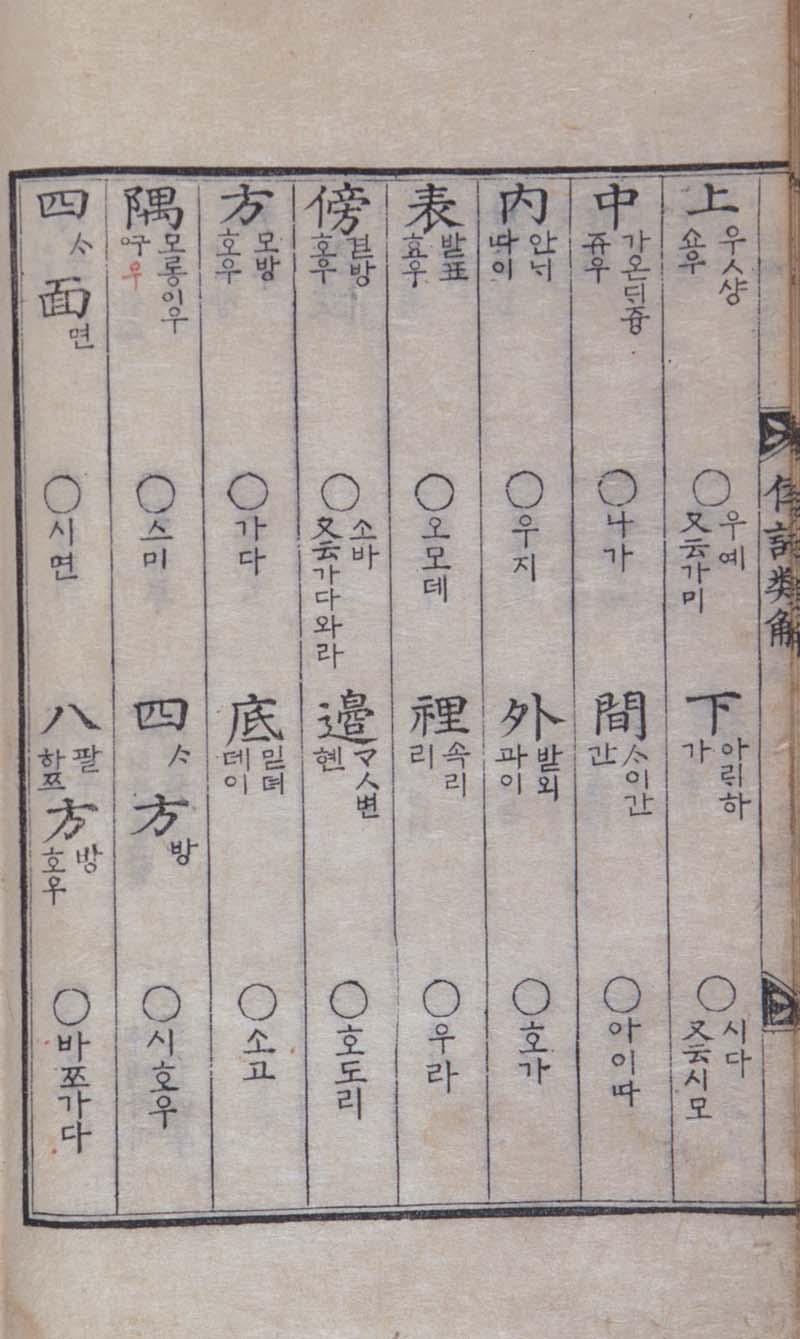 倭語類解
上
우ㅅ샹
쇼우
○
우예
又云가미
下
아ᄅᆡ하
가
○
시다
又云시모
中
가온ᄃᆡ즁
쥬우
○
나가
間
ᄉᆞ이간
간
○
아이따
內
안ᄂᆡ
따이
○
우지
外
받외
과이
○
호가
表
받표
효우
○
오모데
裡
속리
리
○
우라
傍
겯방
호우
○
소바
又云가다와라
邊
ᄀᆞㅅ변
헨
○
호도리
方
모방
호우
○
가다
底
믿뎌
데이
○
소고
隅
모롱이우
우
○
스미
四 ᄉᆞ
方 방
○
시호우
四 ᄉᆞ
面 면
○
시면
八
팔
하쪼
方
방
호우
○
바쪼가다